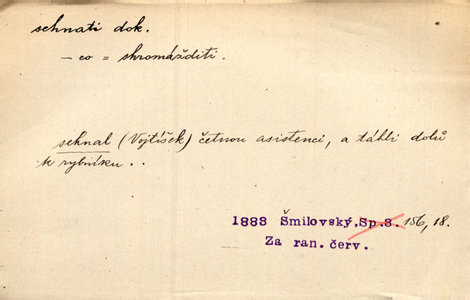 sehnati dok.
— co = shromážditi.
sehnal (Vojtíšek) četnou asistenci, a táhli dolů
k rybníku..
1888 Šmilovský, Sp. 8. 156, 18.
Za ran. červ.